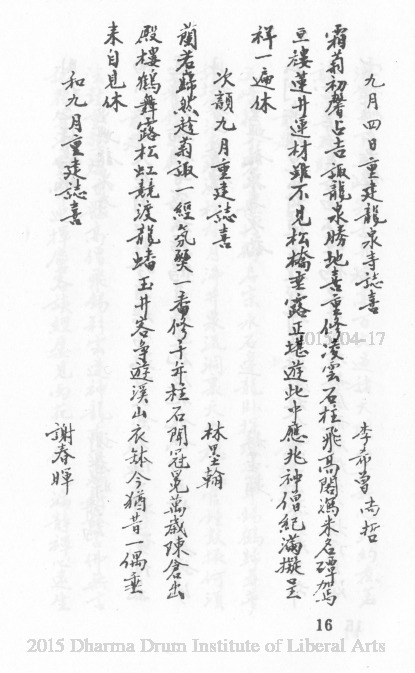 九月四日重建龍泉寺誌喜　李希曾尚哲
霜菊初馨占吉諏龍泉勝地喜重修淩雲石柱飛高閣寫米名譚駕
亘褸蓮井運材雖不見松橋重露正堪遊此中應兆神僧紀滿擬呈
祥一遍休
次韻九月重建誌喜　林墨翰
蘭若歸然趁菊諏一經氛㷼一番修千年柱石開冠冕萬歲陳倉出
殿樓鶴舞露松虹競渡龍蟠玉井客爭遊溪山衣缽今猶昔一偶垂
来自見休
和九月重建誌喜　謝春暉
16
2015-04-17
2015 Dharma Drum Institute of Liberal Arts